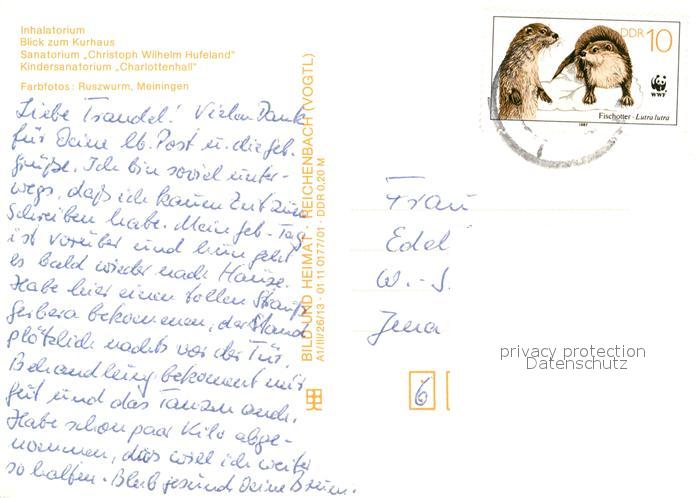 Inhalatorium
Blick zum Kurhaus
Sanatorium „Christoph Wilhelm Hufeland"
Kindersanatorium „Charlottenhall"
Farbfotos: Ruszwurm, Meiningen
Liebe Traudel! Vielen Dank
für Deine lb. Post u. die geb.
grüße. Ich bin soviel unter-
wegs, daß ich kaum Zeit zum
Schreiben habe. Mein geb. Tag
ist vorüber und nun geht
es bald wieder nach Hause.
Habe hier einen tollen Strauß
Gerbera bekommen, der stand
plötzlich nachts vor der Tür.
Behandlung bekommt mir
gut und das Tanzen auch.
Habe schon paar Kilo abge-
nommen, das will ich weiter
so halten. Bleib gesund Deine
BILD UND HEIMAT · REICHENBACH (VOGTL)
A1/III/26/13 · 01 11 0177/01 · DDR 0,20 M
DDR 10
WWF
Fischotter · Lutra lutra
1987
Frau
Edel
W.-S.
Jena
6
privacy protection
Datenschutz